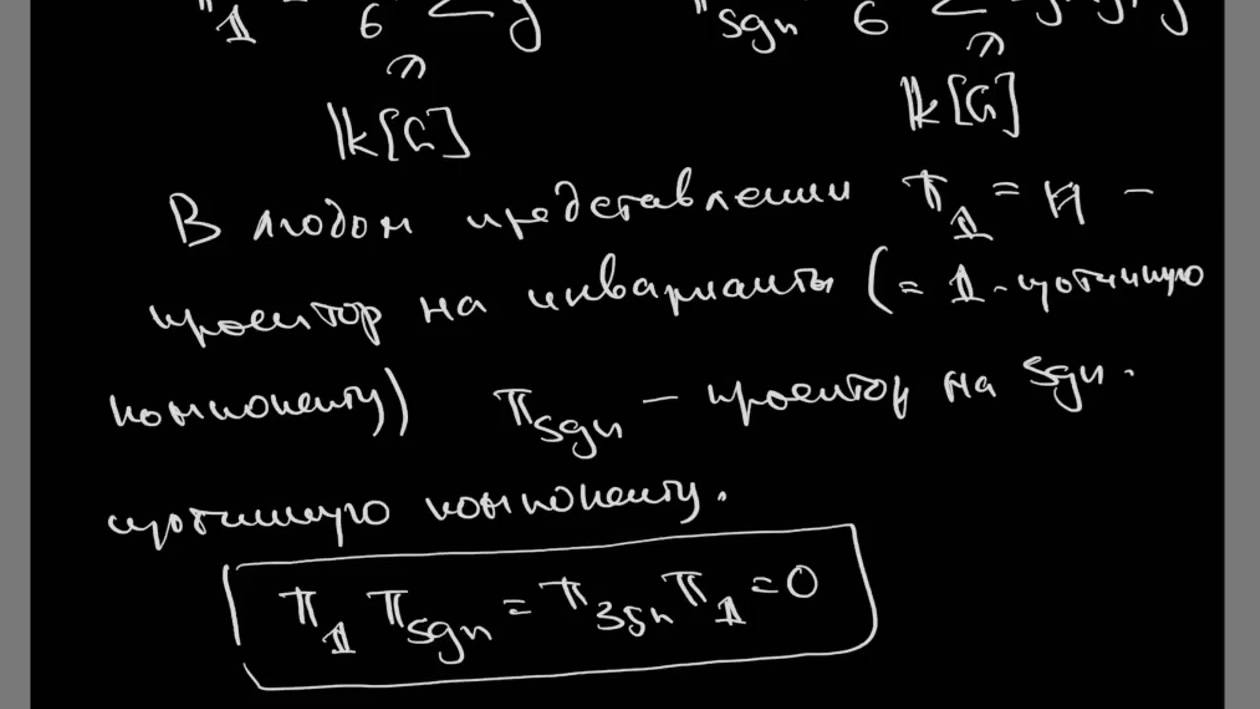 π_𝟙 = 1/6 Σ g   π_sgn = 1/6 Σ
𝕜[G]   𝕜[G]
В любом представлении π_𝟙 = И –
проектор на инварианты (= 𝟙-изотипную
компоненту) π_sgn – проектор на sgn.
изотипную компоненту.
π_𝟙 π_sgn = π_sgn π_𝟙 = 0